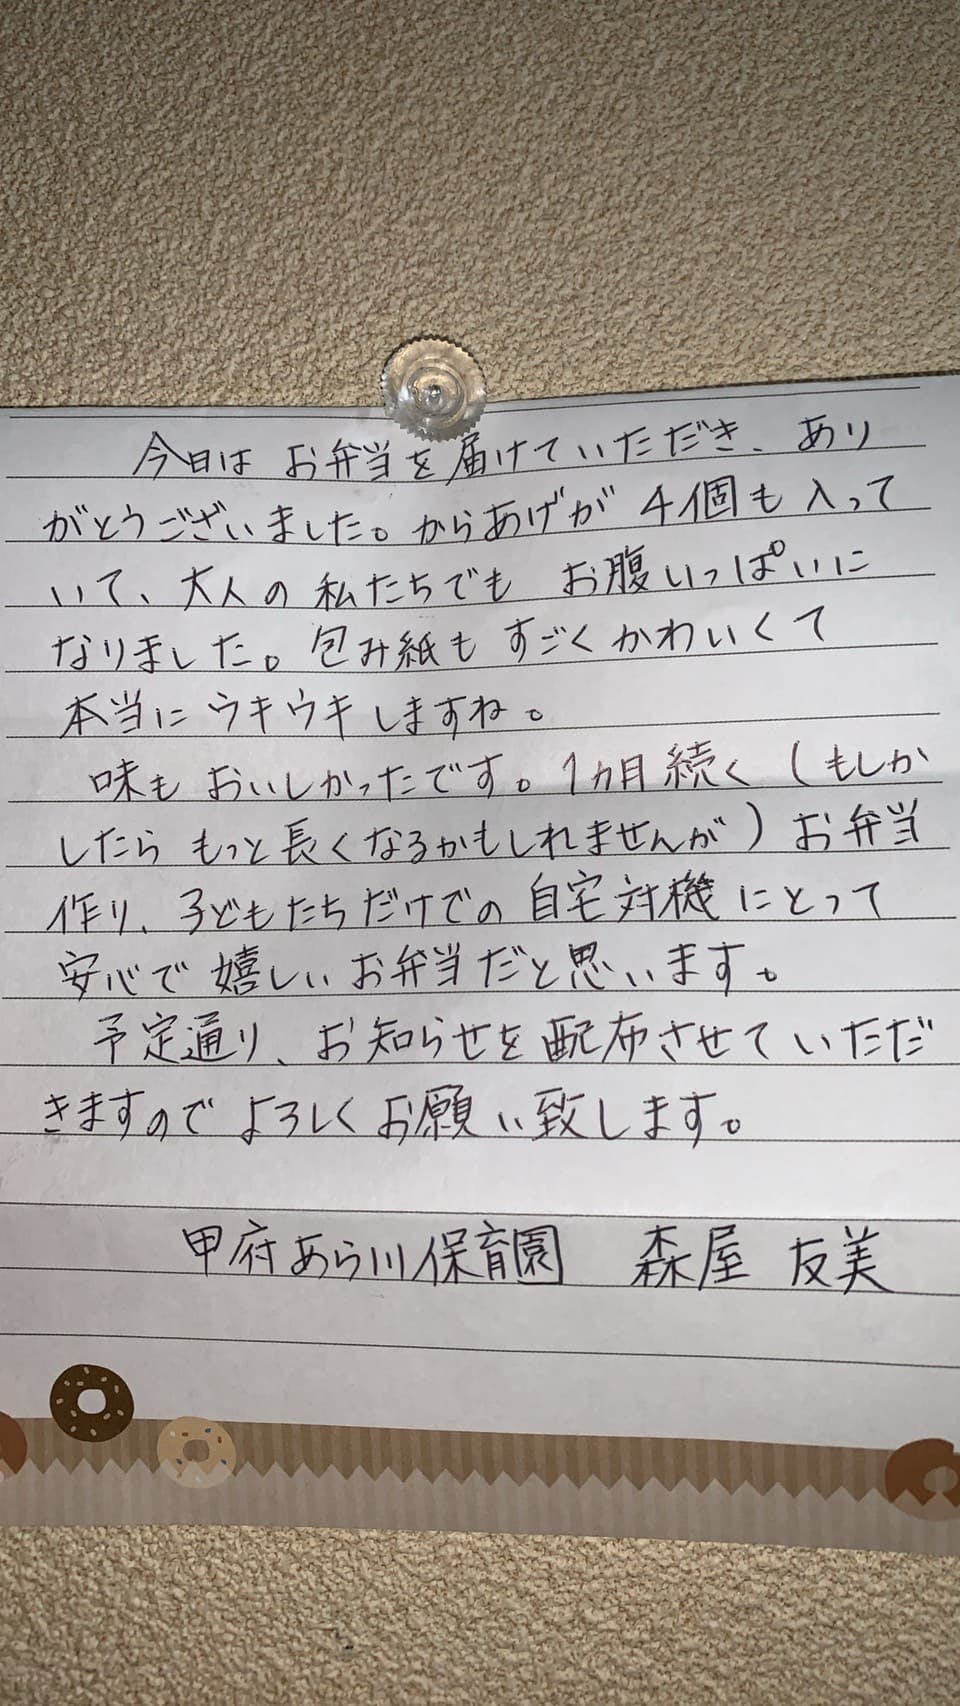 今日は お弁当を届けていただき、あり
がとうございました。からあげが 4個も入って
いて、大人の私たちでも お腹いっぱいに
なりました。包み紙も すごくかわいくて
本当に ウキウキしますね。
味も おいしかったです。1ヵ月続く（もしか
したら もっと長くなるかもしれませんが）お弁当
作り、子どもたちだけでの 自宅対機にとって
安心で 嬉しいお弁当だと思います。
予定通り、お知らせを 配布させていただ
きますのでよろしくお願い致します。
甲府あら川保育園 森屋 友美